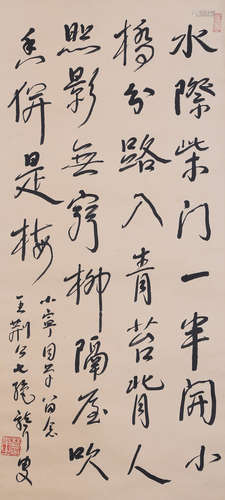 水際柴门一半開小
橋分路入青苔背人
照影無窮柳隔屋吹
香併是梅
小寧同早留念
王荆公七绝龔叟